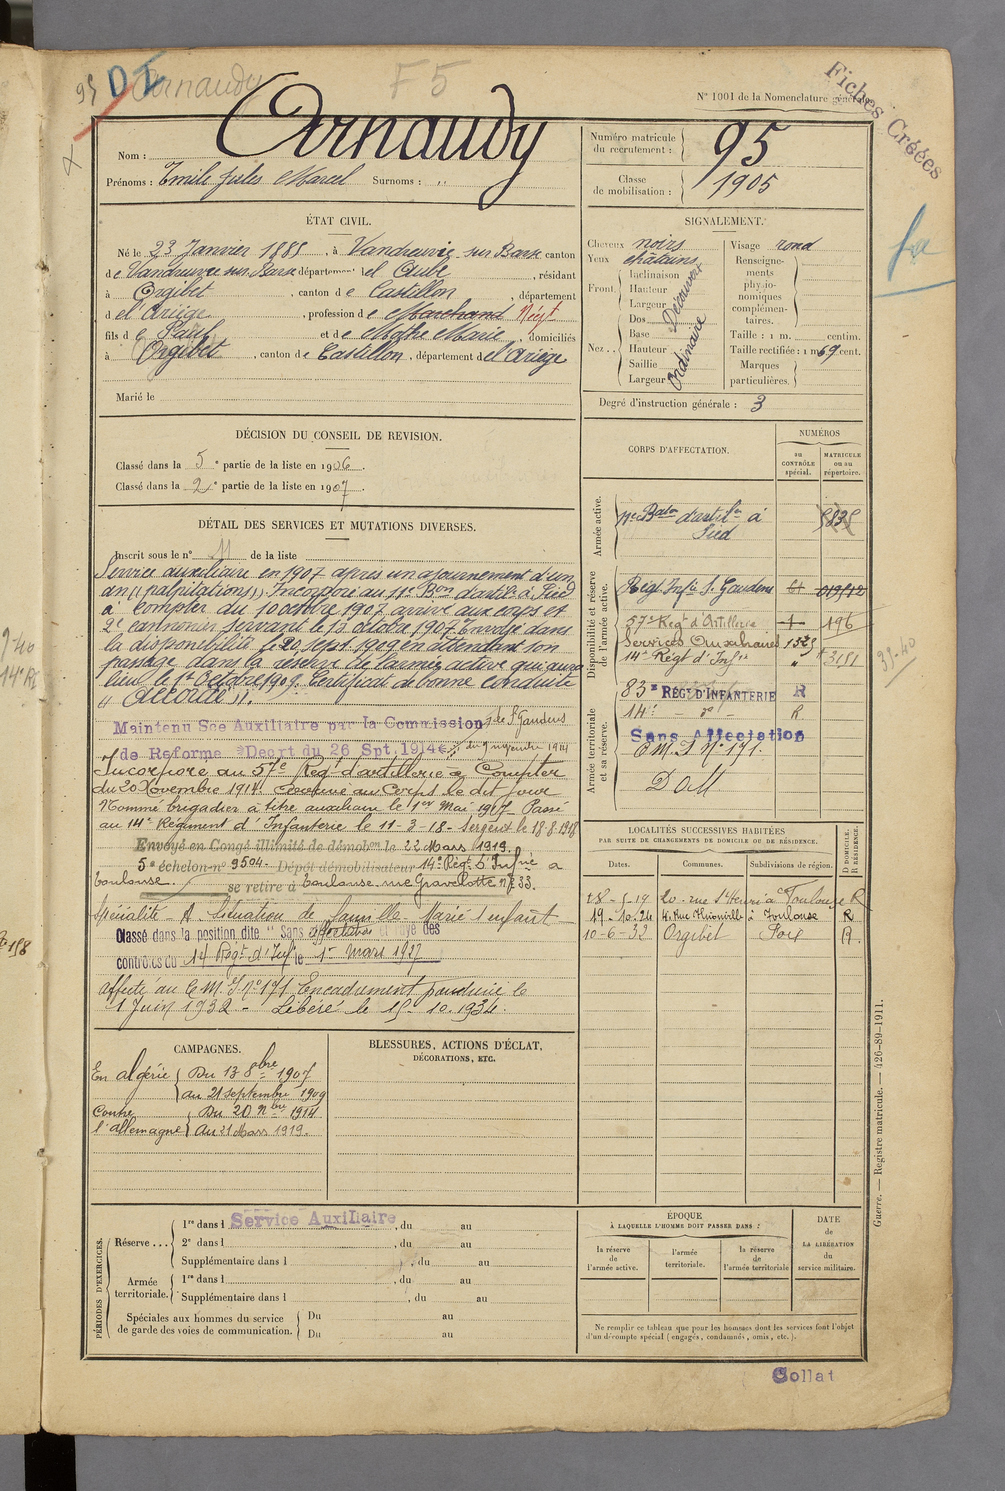 95 DI Arnaudy F5
N° 1001 de la Nomenclature générale.
Fiches Créées
Nom : Arnaudy
Prénoms : Emile Jules Marcel Surnoms : ..
Numéro matricule du recrutement : 95
Classe de mobilisation : 1905
ÉTAT CIVIL.
Né le 23 Janvier 1885, à Vandreuvre sur Barse canton
de Vandreuvre sur Barse département de l'Aube, résidant
à Orgibet, canton de Castillon, département
de l'Ariège, profession de Marchand Négt
fils de Paul et de Mathe Marie, domiciliés
à Orgibet, canton de Castillon, département de l'Ariège
Marié le
SIGNALEMENT.
Cheveux noirs
Yeux châtains
Front. Inclinaison Hauteur Largeur Découvert
Nez.. Dos Base Hauteur Saillie Largeur Ordinaire
Visage rond
Renseignements physionomiques complémentaires.
Taille : 1 m. centim.
Taille rectifiée : 1 m 69 cent.
Marques particulières.
Degré d'instruction générale : 3
DÉCISION DU CONSEIL DE REVISION.
Classé dans la 5e partie de la liste en 1906.
Classé dans la 2e partie de la liste en 1907.
DÉTAIL DES SERVICES ET MUTATIONS DIVERSES.
Inscrit sous le n° 11 de la liste
Service auxiliaire en 1907 après un ajournement d'un
an ((palpitations)). Incorporé au 11e Bon d'artie à Pied
à compter du 10 octobre 1907 arrivé au corps et
2e cannonier servant le 13 octobre 1907. Envoyé dans
la disponibilité le 20 sept. 1909 en attendant son
passage dans la réserve de l'armée active qui aura
lieu le 1er Octobre 1909. Certificat de bonne conduite
"Accordé".
Maintenu Sce Auxiliaire par la Commission de St Gaudens
de Reforme Décrt du 26 Spt. 1914 du 9 novembre 1914
Incorporé au 57e Régt d'artillerie à Compter
du 20 Novembre 1914. Arrivé au Corps le dit jour
Nommé brigadier à titre auxiliaire le 1er Mai 1917 - Passé
au 14e Régiment d'Infanterie le 11-3-18 - Sergent le 18-8-1918
Envoyé en Congé illimité de démobon le 22 Mars 1919.
5e échelon n° 9504 - Dépôt démobilisateur 14e Régt d'Infie à
Toulouse. se retire à Toulouse rue Gravelotte n° 33.
Spécialité - A Situation de famille Marié 1 enfant
Classé dans la position dite "Sans affectation et rayé des
contrôles du 14 Régt d'Inf le 1er mars 1927
affecté au C.M.I. n° 171 Encadrement poudrerie le
1 Juin 1932 - Libéré le 15.10.1934.
CORPS D'AFFECTATION.
NUMÉROS
au CONTRÔLE spécial.
MATRICULE ou au répertoire.
Armée active.
11e Baton d'artile à Pied 5835
Disponibilité et réserve de l'armée active.
Régt Infie St. Gaudens
57e Régt d'Artillerie 196
Services Auxiliaires 1325
14e Régt d'Infie " 3151
Armée territoriale et sa réserve.
83e RÉGt D'INFANTERIE R
14e do - R
Sans Affectation
C.M.I. N° 171.
DoM
99-40
LOCALITÉS SUCCESSIVES HABITÉES
PAR SUITE DE CHANGEMENTS DE DOMICILE OU DE RÉSIDENCE.
Dates. Communes. Subdivisions de région. D DOMICILE. R RÉSIDENCE.
28-5-19 20 rue St Henri à Toulouse R
19-10-24 4. Rue Thionville à Toulouse R
10-6-32 Orgibet Foix R.
CAMPAGNES.
En algérie Du 13 8bre 1907
au 21 septembre 1909
Contre Du 20 nbre 1914
l'allemagne Au 21 Mars 1919.
BLESSURES, ACTIONS D'ÉCLAT,
DÉCORATIONS, ETC.
PÉRIODES D'EXERCICES.
Réserve... 1re dans l Service Auxiliaire, du au
2e dans l , du au
Supplémentaire dans l , du au
Armée territoriale. 1re dans l , du au
Supplémentaire dans l , du au
Spéciales aux hommes du service de garde des voies de communication. Du au
Du au
ÉPOQUE
À LAQUELLE L'HOMME DOIT PASSER DANS :
la réserve de l'armée active.
l'armée territoriale.
la réserve de l'armée territoriale
DATE de LA LIBÉRATION du service militaire.
Ne remplir ce tableau que pour les hommes dont les services font l'objet
d'un décompte spécial (engagés, condamnés, omis, etc.).
Guerre. — Registre matricule. — 426-89-1911.
Collat